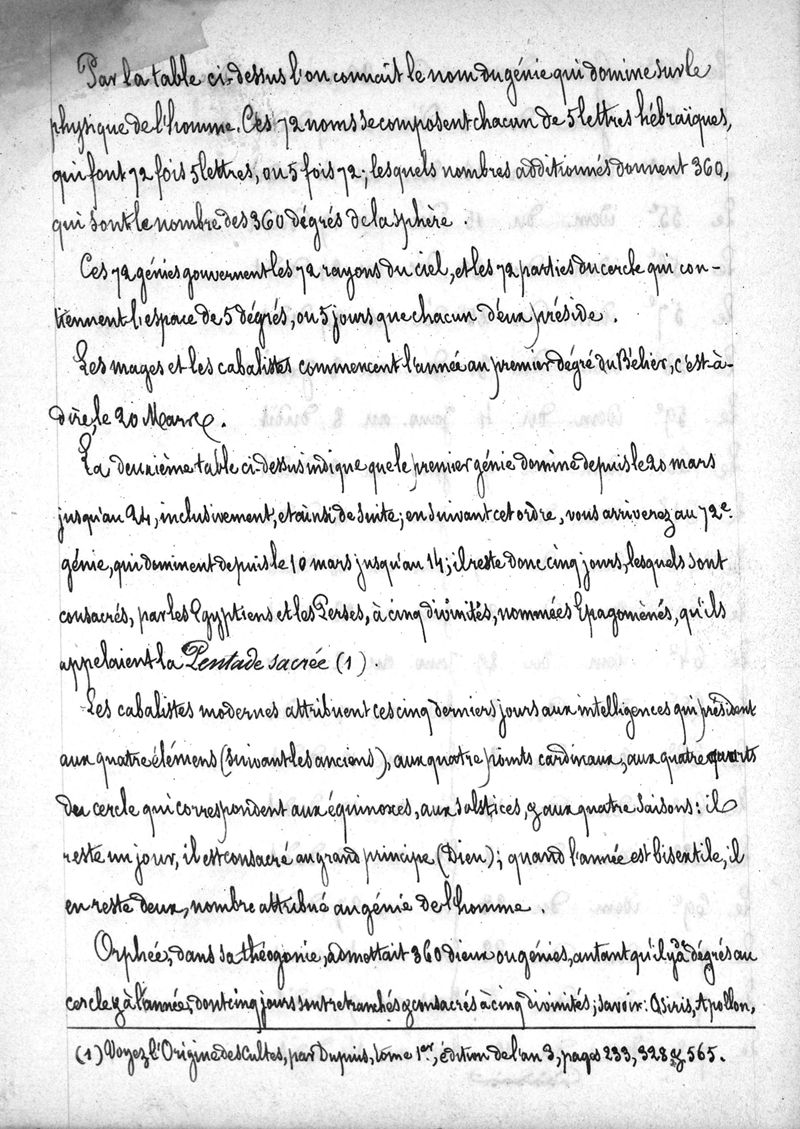 Par la table ci-dessus l'on connait le nom du génie qui domine sur le
physique de l'homme. Ces 72 noms se composent chacun de 5 lettres hébraïques,
qui font 72 fois 5 lettres, ou 5 fois 72; lesquels nombres additionnés donnent 360,
qui sont le nombre des 360 dégrés de la sphère
Ces 72 génies gouvernent les 72 rayons du ciel, et les 72 parties du cercle qui con-
tiennent l'espace de 5 dégrés, ou 5 jours que chacun d'eux préside.
Les mages et les cabalistes commencent l'année au premier dégré du Bélier, c'est-à-
dire, le 20 Mars.
La deuxième table ci-dessus indique que le premier génie domine depuis le 20 mars
jusqu'au 24, inclusivement, et ainsi de suite; en suivant cet ordre, vous arriverez au 72e.
génie, qui dominent depuis le 10 mars jusqu'au 14; il reste donc cinq jours, lesquels sont
consacrés, par les Egyptiens et les Perses, à cinq divinités, nommées Epagomènés, qu'ils
appelaient la Pentade sacrée (1).
Les cabalistes modernes attribuent ces cinq derniers jours aux intelligences qui président
aux quatre élémens (suivant les anciens), aux quatre points cardinaux, aux quatre quarts
du cercle qui correspondent aux équinoxes, aux solstices, & aux quatre saisons: il
reste un jour, il est consacré au grand principe (Dieu); quand l'année est bisextile, il
en reste deux, nombre attribué au génie de l'homme.
Orphée, dans sa théogonie, admettait 360 dieux ou génies, autant qu'il y a de dégrés au
cercle & à l'année, dont cinq jours sont retranchés & consacrés à cinq divinités; savoir: Osiris, Apollon,
(1) Voyez l'Origine des Cultes, par Dupuis, tome 1er, édition de l'an 3, pages 233, 328 & 565.